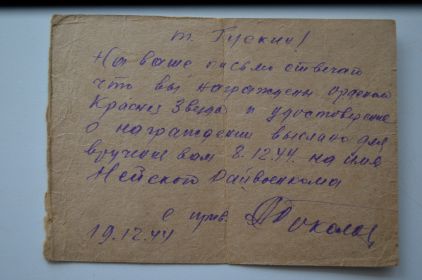 т. Гускин!
На ваше письмо отвечаю
что вы награждены орденом
Красная Звезда и удостоверение
о награждении выслано для
вручения вам 8.12.44 на имя
Нейского Райвоенкома
С прив.
19.12.44